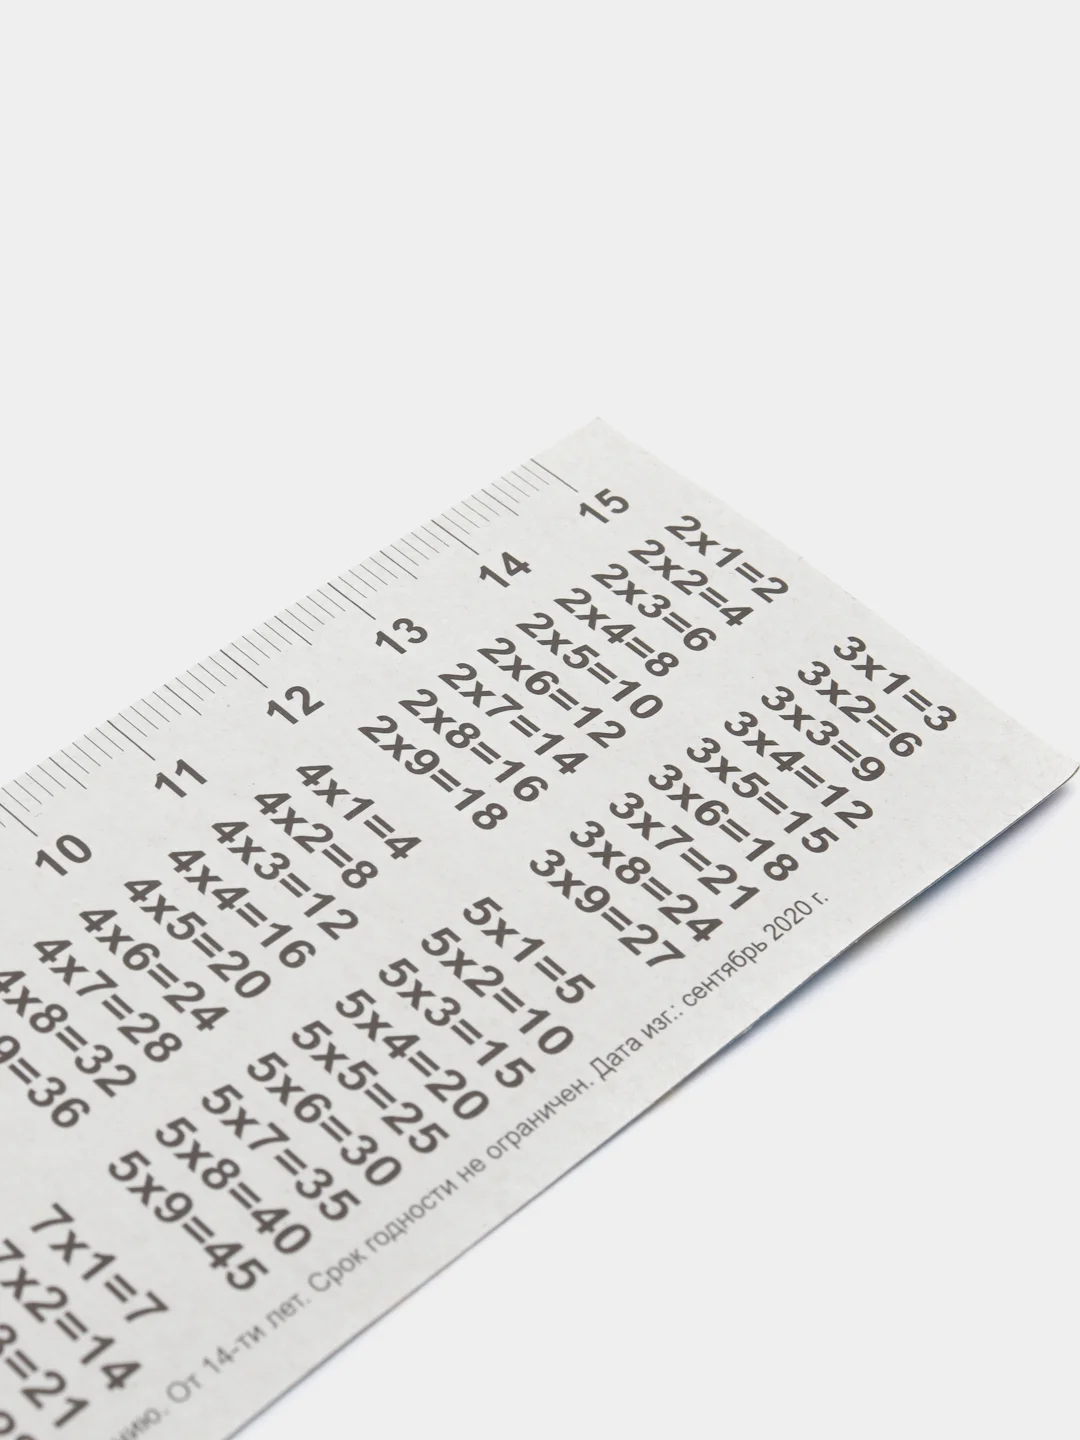 10 11 12 13 14 15
2x1=2
2x2=4
2x3=6
2x4=8
2x5=10
2x6=12
2x7=14
2x8=16
2x9=18
3x1=3
3x2=6
3x3=9
3x4=12
3x5=15
3x6=18
3x7=21
3x8=24
3x9=27
4x1=4
4x2=8
4x3=12
4x4=16
4x5=20
4x6=24
4x7=28
4x8=32
9=36
5x1=5
5x2=10
5x3=15
5x4=20
5x5=25
5x6=30
5x7=35
5x8=40
5x9=45
7x1=7
7x2=14
3=21
От 14-ти лет. Срок годности не ограничен. Дата изг.: сентябрь 2020 г.